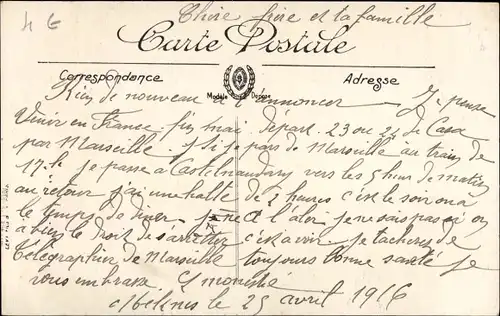 4 €
Chère frère et ta famille
Carte Postale
Correspondance
Modèle Déposé
Adresse
Rien de nouveau à énnoncer Je pense
Venir en France fin mai. Départ 23 ou 24 de Casa
par Marseille. Si je pars de Marseille au train de
17 h je passe à Castelnaudary vers les 5 heur de matin
au retour j'ai une halte de 2 heures c'est le soir on a
le temps de diner. à l'aler je ne sais pas si on
a bien le droit de s'arrêter c'est a voir. Je tacherez de
télégraphier de Marseille toujours bonne santé je
vous embrasse.
le 25 avril 1916